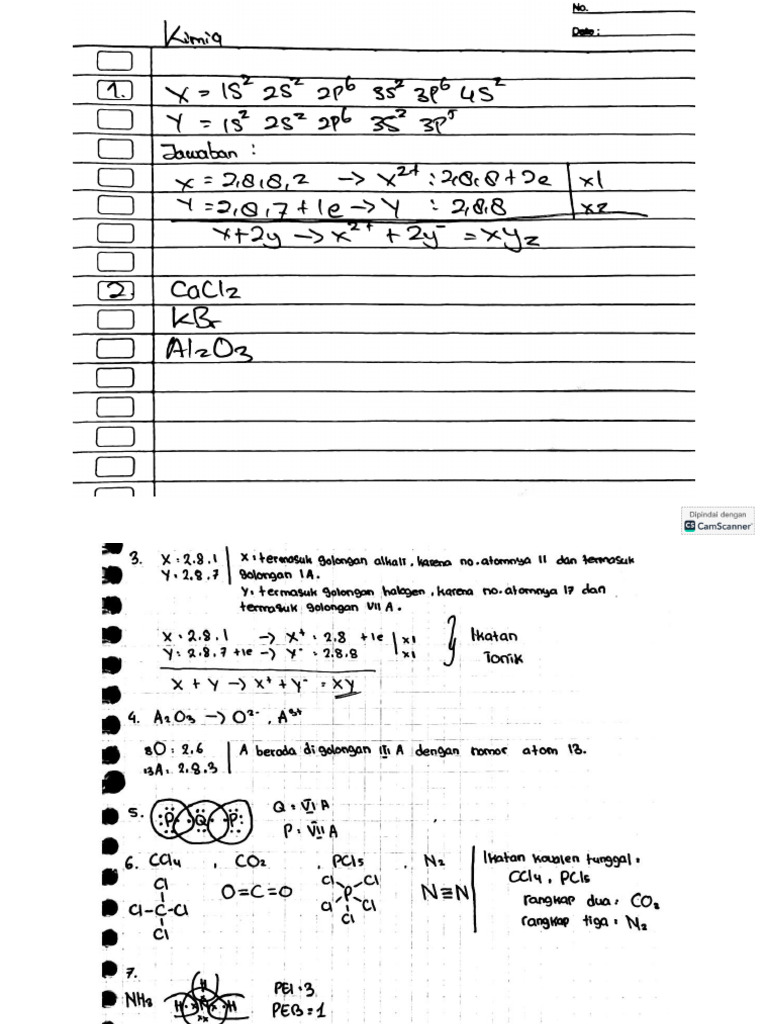 No.
Date :
Kimia
1. X = 1S² 2S² 2p⁶ 3S² 3p⁶ 4S²
Y = 1S² 2S² 2p⁶ 3S² 3p⁵
Jawaban :
X = 2,8,8,2 → X²⁺ : 2,8,8 + 2e | x1
Y = 2,8,7 + 1e → Y : 2,8,8 | x2
X + 2y → X²⁺ + 2y⁻ = XY₂
2. CaCl₂
KBr
Al₂O₃
Dipindai dengan
CS CamScanner
3. X : 2.8.1 | X : termasuk golongan alkali, karena no.atomnya 11 dan termasuk
Y : 2.8.7 | golongan IA.
Y : termasuk golongan halogen, karena no.atomnya 17 dan
termasuk golongan VII A.
X : 2.8.1 → X⁺ : 2.8 + 1e | x1 } Ikatan
Y : 2.8.7 + 1e → Y⁻ : 2.8.8 | x1 Ionik
X + Y → X⁺ + Y⁻ = XY
4. A₂O₃ → O²⁻, A³⁺
₈O : 2,6 | A berada di golongan III A dengan nomor atom 13.
₁₃A : 2.8.3
5. P Q P Q : VI A
P : VII A
6. CCl₄ , CO₂ , PCl₅ , N₂ | Ikatan kovalen tunggal :
CCl₄, PCl₅
Cl
Cl-C-Cl O=C=O
Cl
Cl Cl
P
Cl Cl
Cl
N≡N
rangkap dua : CO₂
rangkap tiga : N₂
7.
NH₃ H H N H PEI : 3
PEB = 1